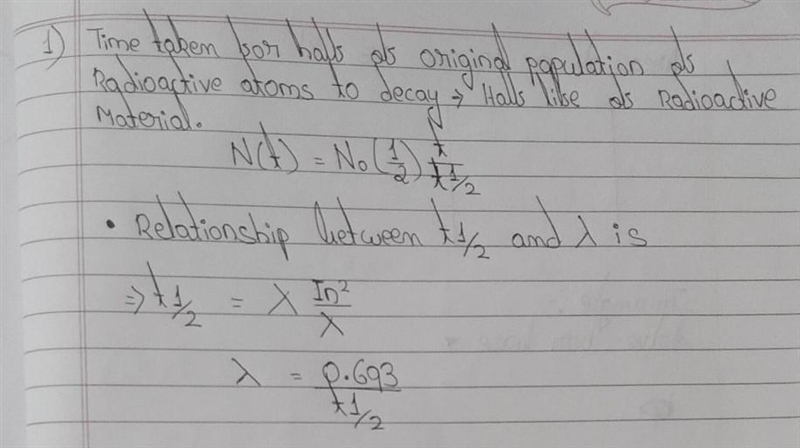 1) Time taken for half of original population of
Radioactive atoms to decay → Half life of Radioactive
Material.
N(t) = N₀(1/2) t/t1/2
• Relationship between t1/2 and λ is
⇒ t1/2 = λ In²/λ
λ = 0.693/t1/2